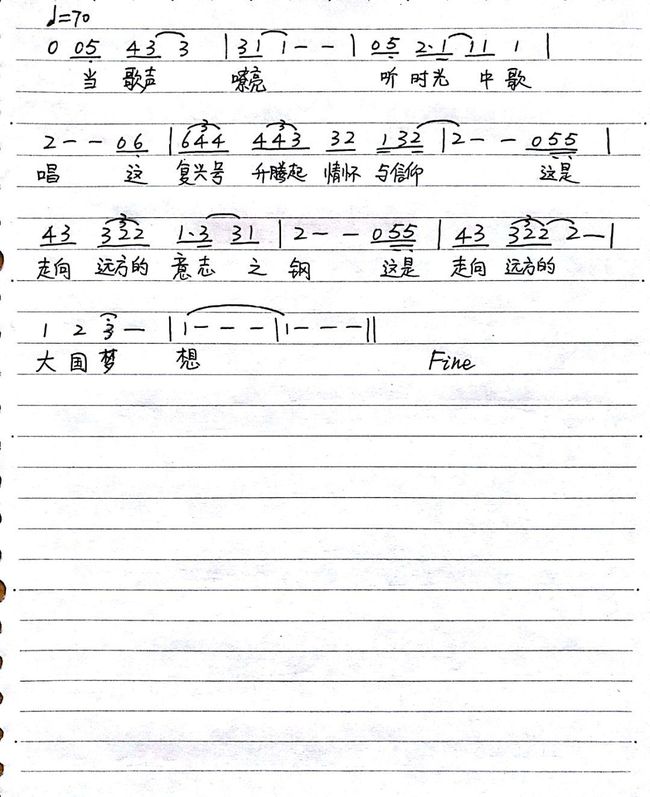 ♩=70
0 05 43 3 | 31 1 - - | 05 2·1 11 1 |
当 歌声 嘹亮 听 时光 中 歌
2 - - 06 | 644 443 32 132 | 2 - - 055 |
唱 这 复兴号 升腾起 情怀 与信仰 这是
43 322 1·3 31 | 2 - - 055 | 43 322 2 - |
走向 远方的 意志 之 钢 这是 走向 远方的
1 2 3 - | 1 - - - | 1 - - - ||
大 国 梦 想 Fine